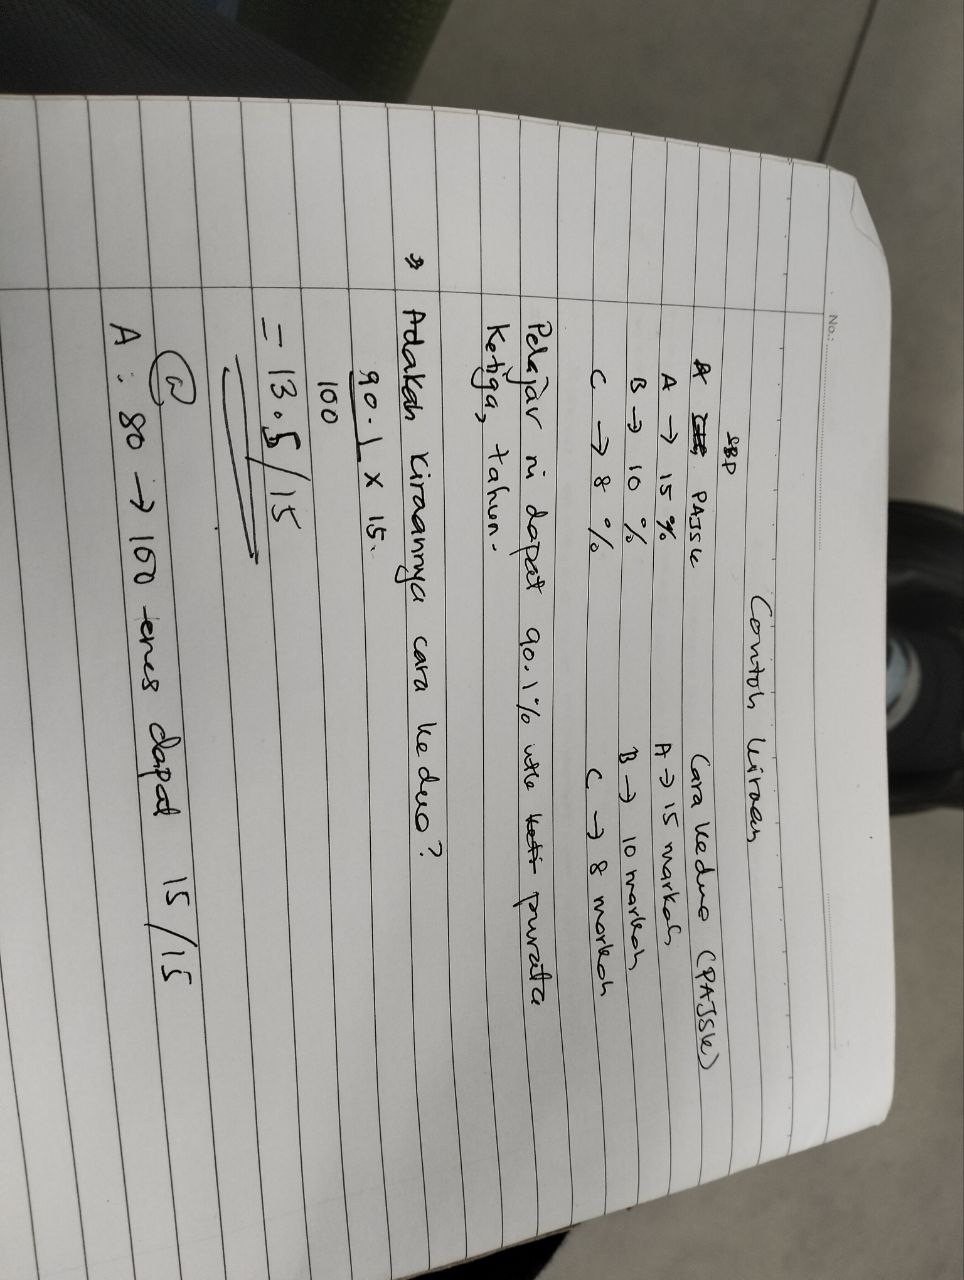 No.:
Contoh kiraan
SBP
A PAJSK
Cara kedua (PAJSK)
A → 15 %
A → 15 markah
B → 10 %
B → 10 markah
C → 8 %
C → 8 markah
Pelajar ni dapat 90.1% utk purata
ketiga, tahun.
* Adakah kiraannya cara kedua?
90.1 x 15.
100
= 13.5/15
@
A : 80 → 100 dapat 15/15